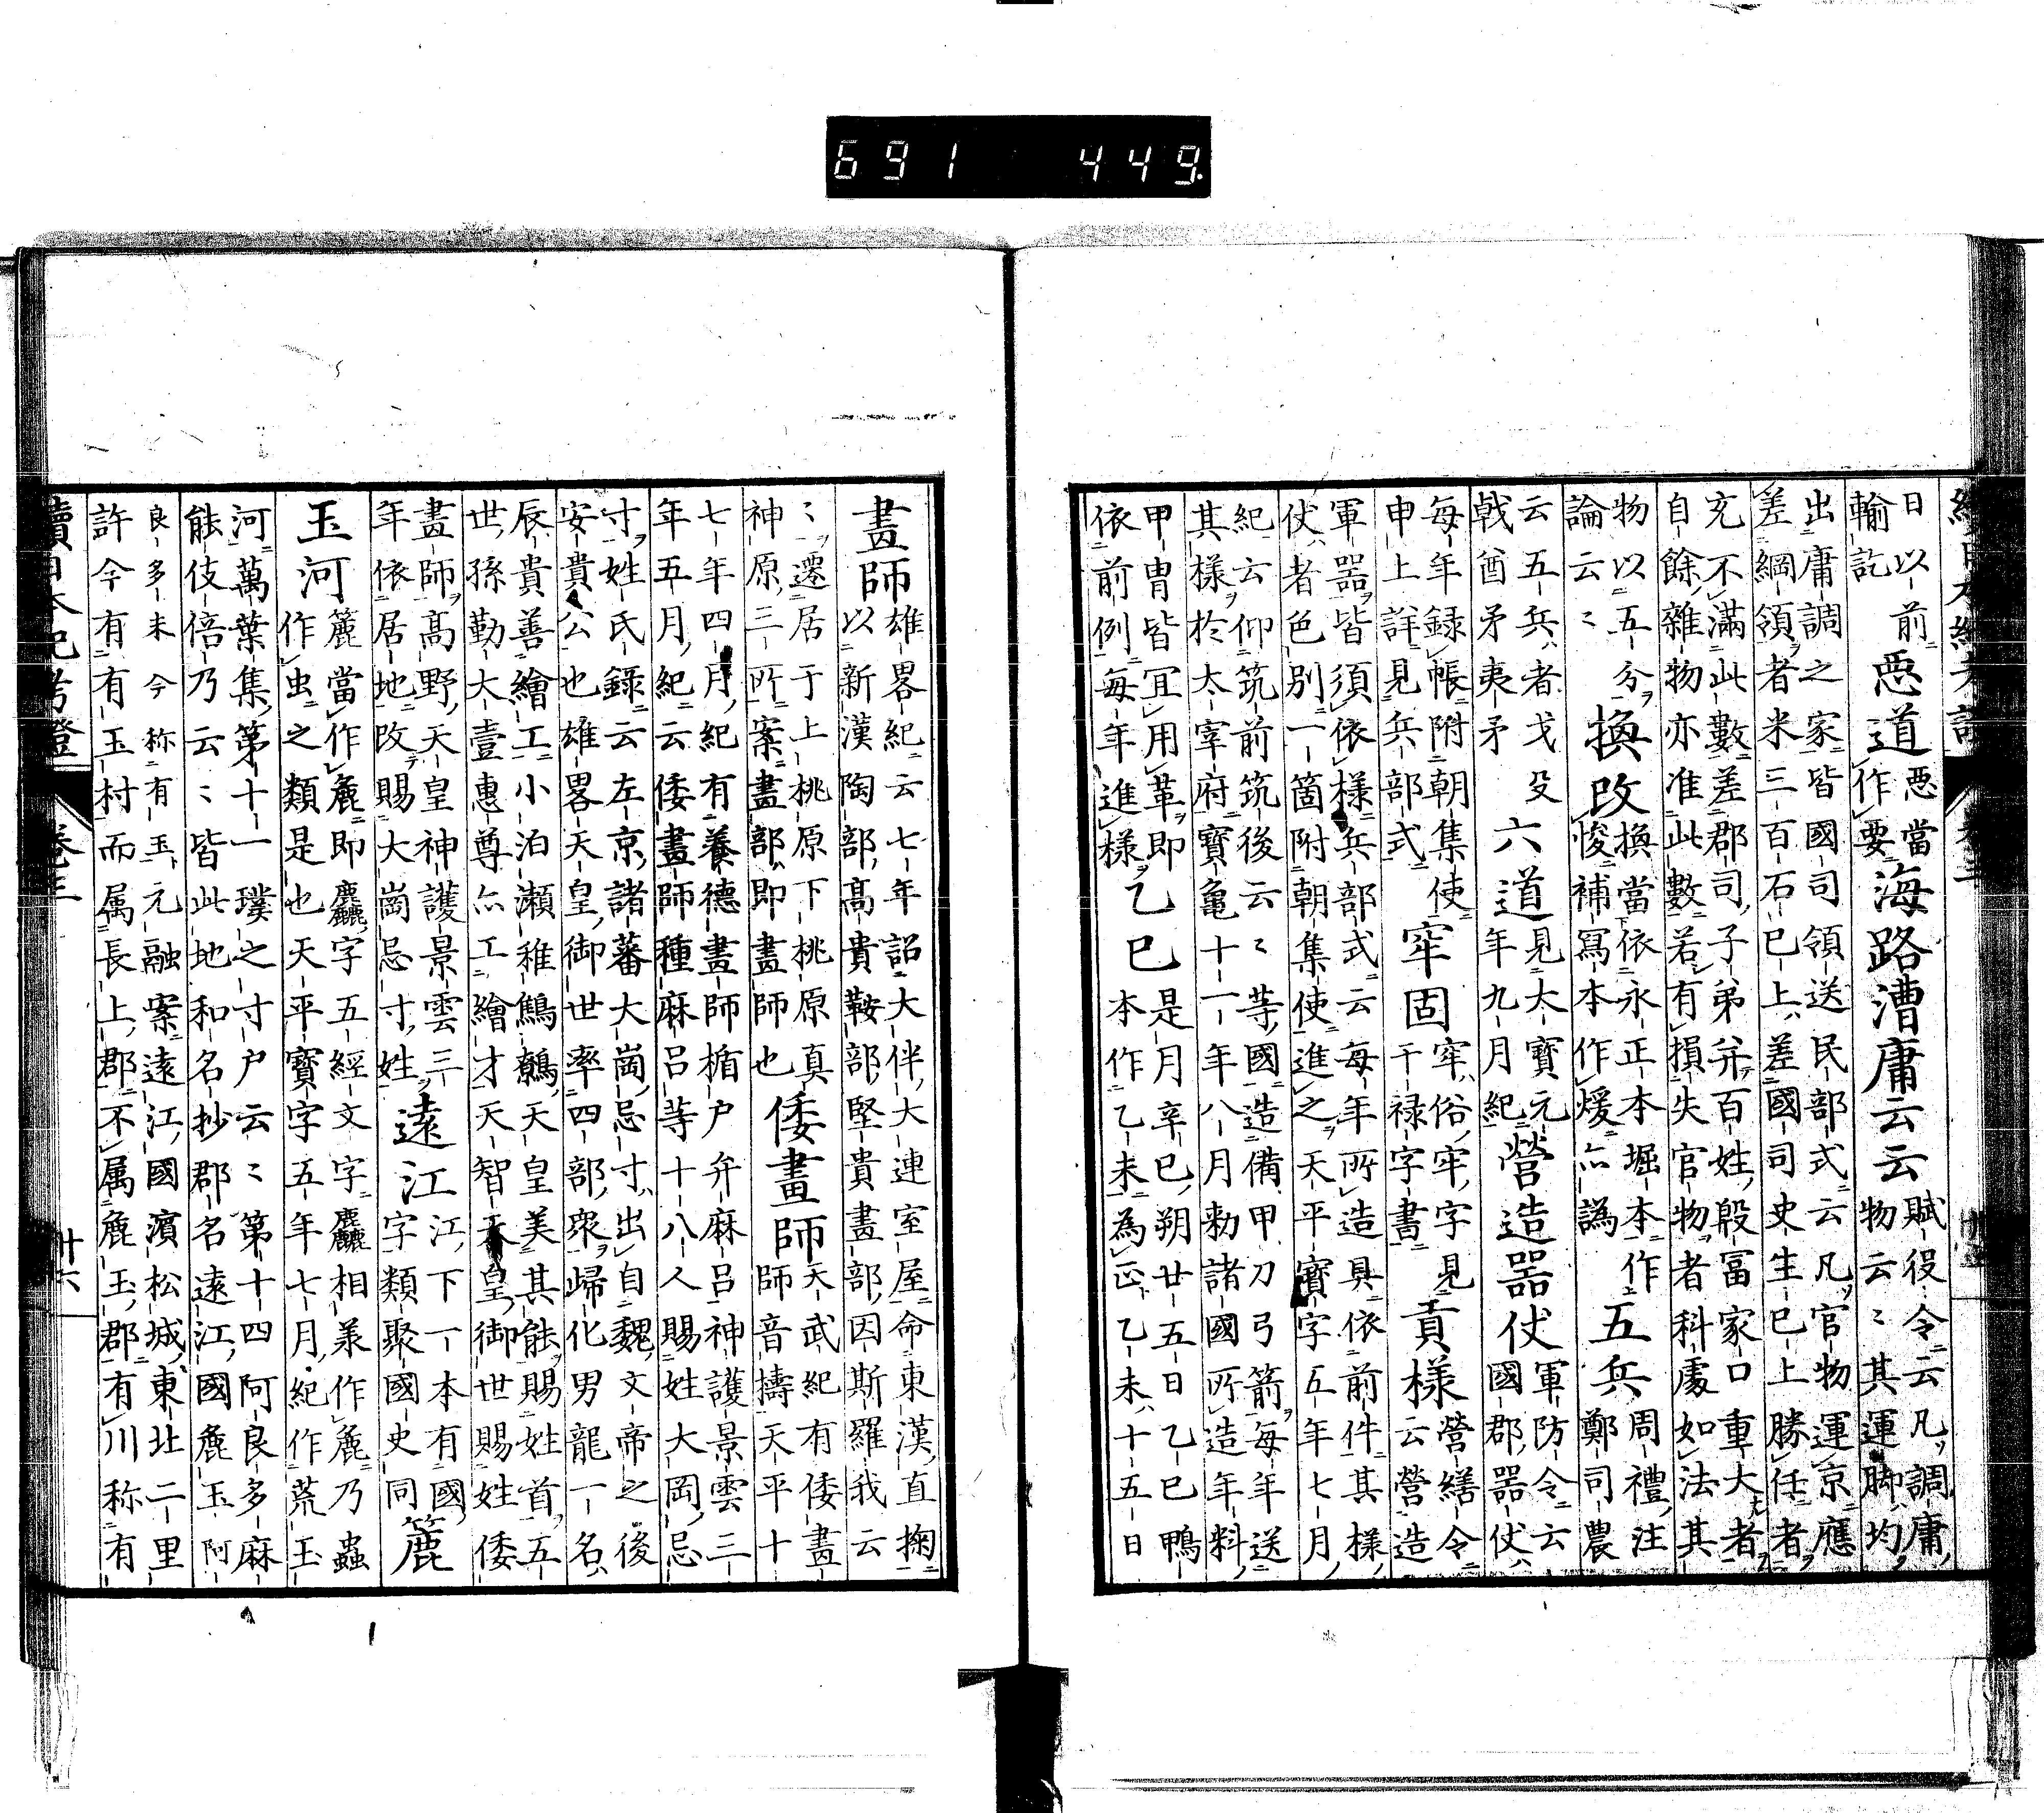 續日本紀考證 卷三
日以前
輸訖
悪道
悪當
作要
海路漕庸云云
賦役令云凡調庸
物云〻其運脚均
出庸調之家皆國司領送民部式云凡官物運京應
差綱領者米三百石已上差國司史生已上勝任者
充不滿此數差郡司子弟并百姓殷冨家口重大者
自餘雜物亦准此數若有損失官物者科處如法其
物以五分
論云〻
換改
換當依永正本堀本作
悛補冩本作煖亦譌
五兵
周禮注
鄭司農
云五兵者戈殳
戟酋矛夷矛
六道
見大寶元
年九月紀
營造器仗
軍防令云
國郡器仗
每年録帳附朝集使
申上詳見兵部式
牢固
牢俗牢字見
干禄字書
貢樣
營繕令
云營造
軍器皆須依樣兵部式云每年所造具依前件其樣
仗者色別一箇附朝集使進之天平寶字五年七月
紀云仰筑前筑後云〻等國造備甲刀弓箭每年送
其樣於太宰府寶亀十一年八月勅諸國所造年料
甲冑皆宜用革即
依前例每年進樣
乙巳
是月辛巳朔廿五日乙巳鴨
本作乙未為正乙未十五日
畫師
雄畧紀云七年詔大伴大連室屋命東漢直掬
以新漢陶部高貴鞍部堅貴畫部因斯羅我云
〻遷居于上桃原下桃原真
神原三所案畫部即畫師也
倭畫師
天武紀有倭畫
師音擣天平十
七年四月紀有養德畫師楯戸弁麻呂神護景雲三
年五月紀云倭畫師種麻呂等十八人賜姓大岡忌
寸姓氏録云左京諸蕃大崗忌寸出自魏文帝之後
安貴公也雄畧天皇御世率四部衆歸化男龍一名
辰貴善繪工小泊瀬稚鷦鷯天皇美其能賜姓首五
世孫勤大壹惠尊亦工繪才天智天皇御世賜姓倭
畫師高野天皇神護景雲三
年依居地改賜大崗忌寸姓
遠江
江下一本有國
字類聚國史同
麁
玉河
麁當作麁即麤字五經文字麤相羕作麁乃蟲
作虫之類是也天平寶字五年七月紀作荒玉
河萬葉集第十一璞之寸戸云〻第十四阿良多麻
能伎倍乃云〻皆此地和名抄郡名遠江國麁玉阿
良多末今称有玉元融案遠江國濱松城東北二里
許今有有玉村而属長上郡不属麁玉郡有川称有
續日本紀考證 卷三 廾六
691 449